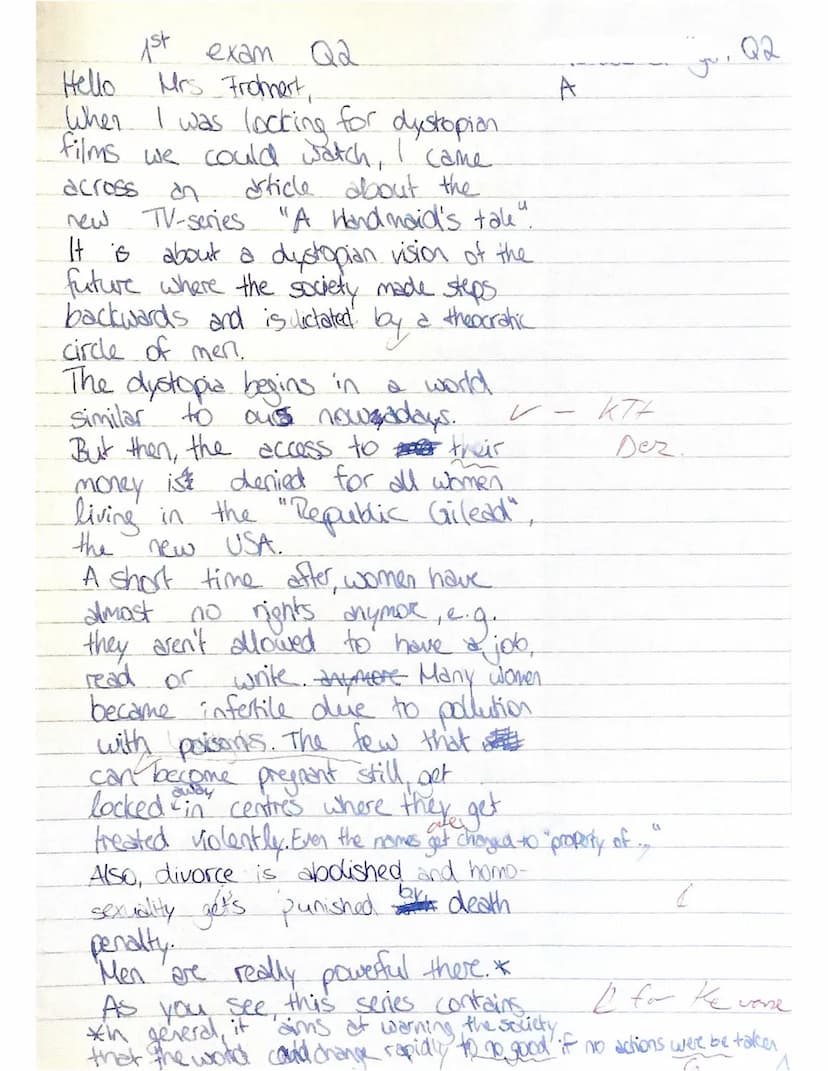 1st exam Q2
Q2
Hello Mrs Frohnert,
A
When I was locking for dystopian
films we could watch, I came
across an article about the
new TV-series "A Handmaid's tale".
It is about a dystopian vision of the
future where the society made steps
backwards and is dictated by a theocratic
circle of men.
The dystopia begins in a world
similar to ours nowadays.
But then, the access to their
money is denied for all women
living in the "Republic Gilead",
the new USA.
A short time after, women have
almost no rights anymor, e.g.
they aren't allowed to have a job,
read or write. anymore Many women
became infertile due to pollution
with poisons. The few that
can become pregnant still, get
locked away in centres where they get
treated violently. Even the names get changed to "property of..."
are
Also, divorce is abolished and homo-
sexuality gets punished by death
penalty.
Men are really powerful there.*
As you see, this series contains
*In general, it aims at warning the society
that the world could change rapidly to no good if no actions were be taken